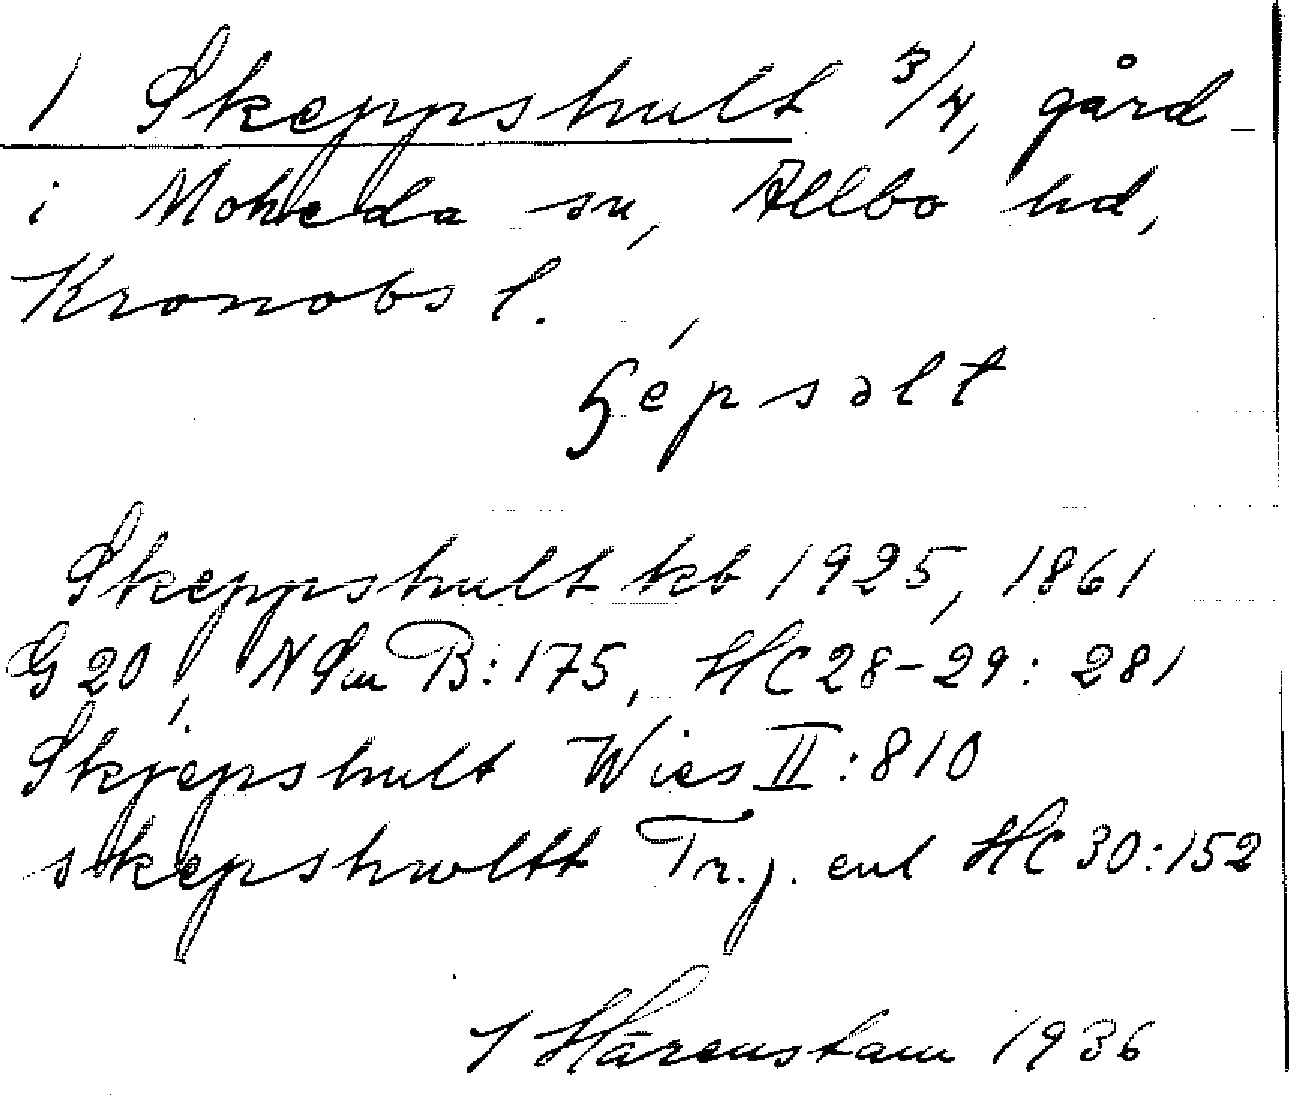 1 Skeppshult 3/4, gård
i Moheda sn, Allbo hd,
Kronobs l.
ɧépsəlt
Skeppshult kb 1925, 1861
G 20, NSm B:175, HC 28-29: 281
Skjepshult Wies II:810
skepshwltt Tr.j. enl HC 30:152
J Härenstam 1936